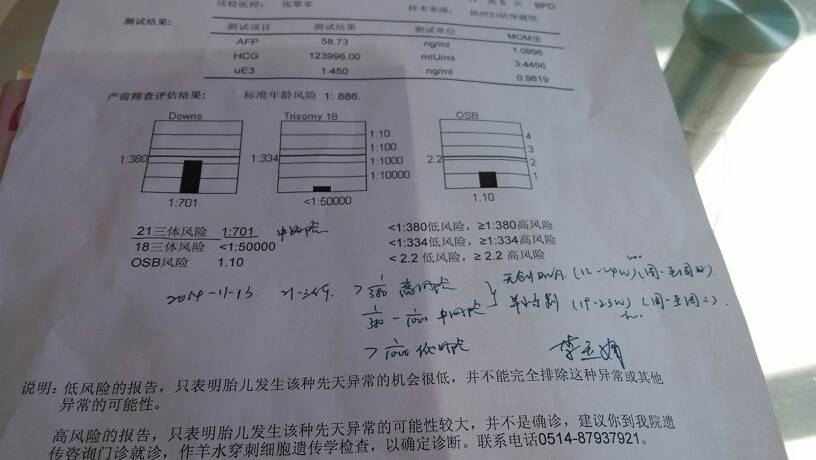 送检医师: 张翠军 样本来源: 扬州妇幼保健院
天 BPD
测试结果: 测试项目 测试结果 测试单位 MOM值
AFP 58.73 ng/ml 1.0996
HCG 123996.00 mIU/ml 3.4456
uE3 1.450 ng/ml 0.9819
产前筛查评估结果: 标准年龄风险 1: 886.
Downs Trisomy 18 OSB
1:10 4
1:100 3
1:380 1:334 1:1000 2.2 2
1:10000 1
1:701 <1:50000 1.10
21三体风险 1:701 中风险 <1:380低风险,≥1:380高风险
18三体风险 <1:50000 <1:334低风险,≥1:334高风险
OSB风险 1.10 < 2.2 低风险,≥ 2.2 高风险
2014-11-13. >1/380 高风险 无创DNA (12-24W)
1/380 - 1/1000 中风险 羊水穿刺 (19-23W) (周一至周二)
>1/1000 低风险
说明: 低风险的报告,只表明胎儿发生该种先天异常的机会很低,并不能完全排除这种异常或其他
异常的可能性。
高风险的报告,只表明胎儿发生该种先天异常的可能性较大,并不是确诊,建议你到我院遗
传咨询门诊就诊,作羊水穿刺细胞遗传学检查,以确定诊断。联系电话0514-87937921。